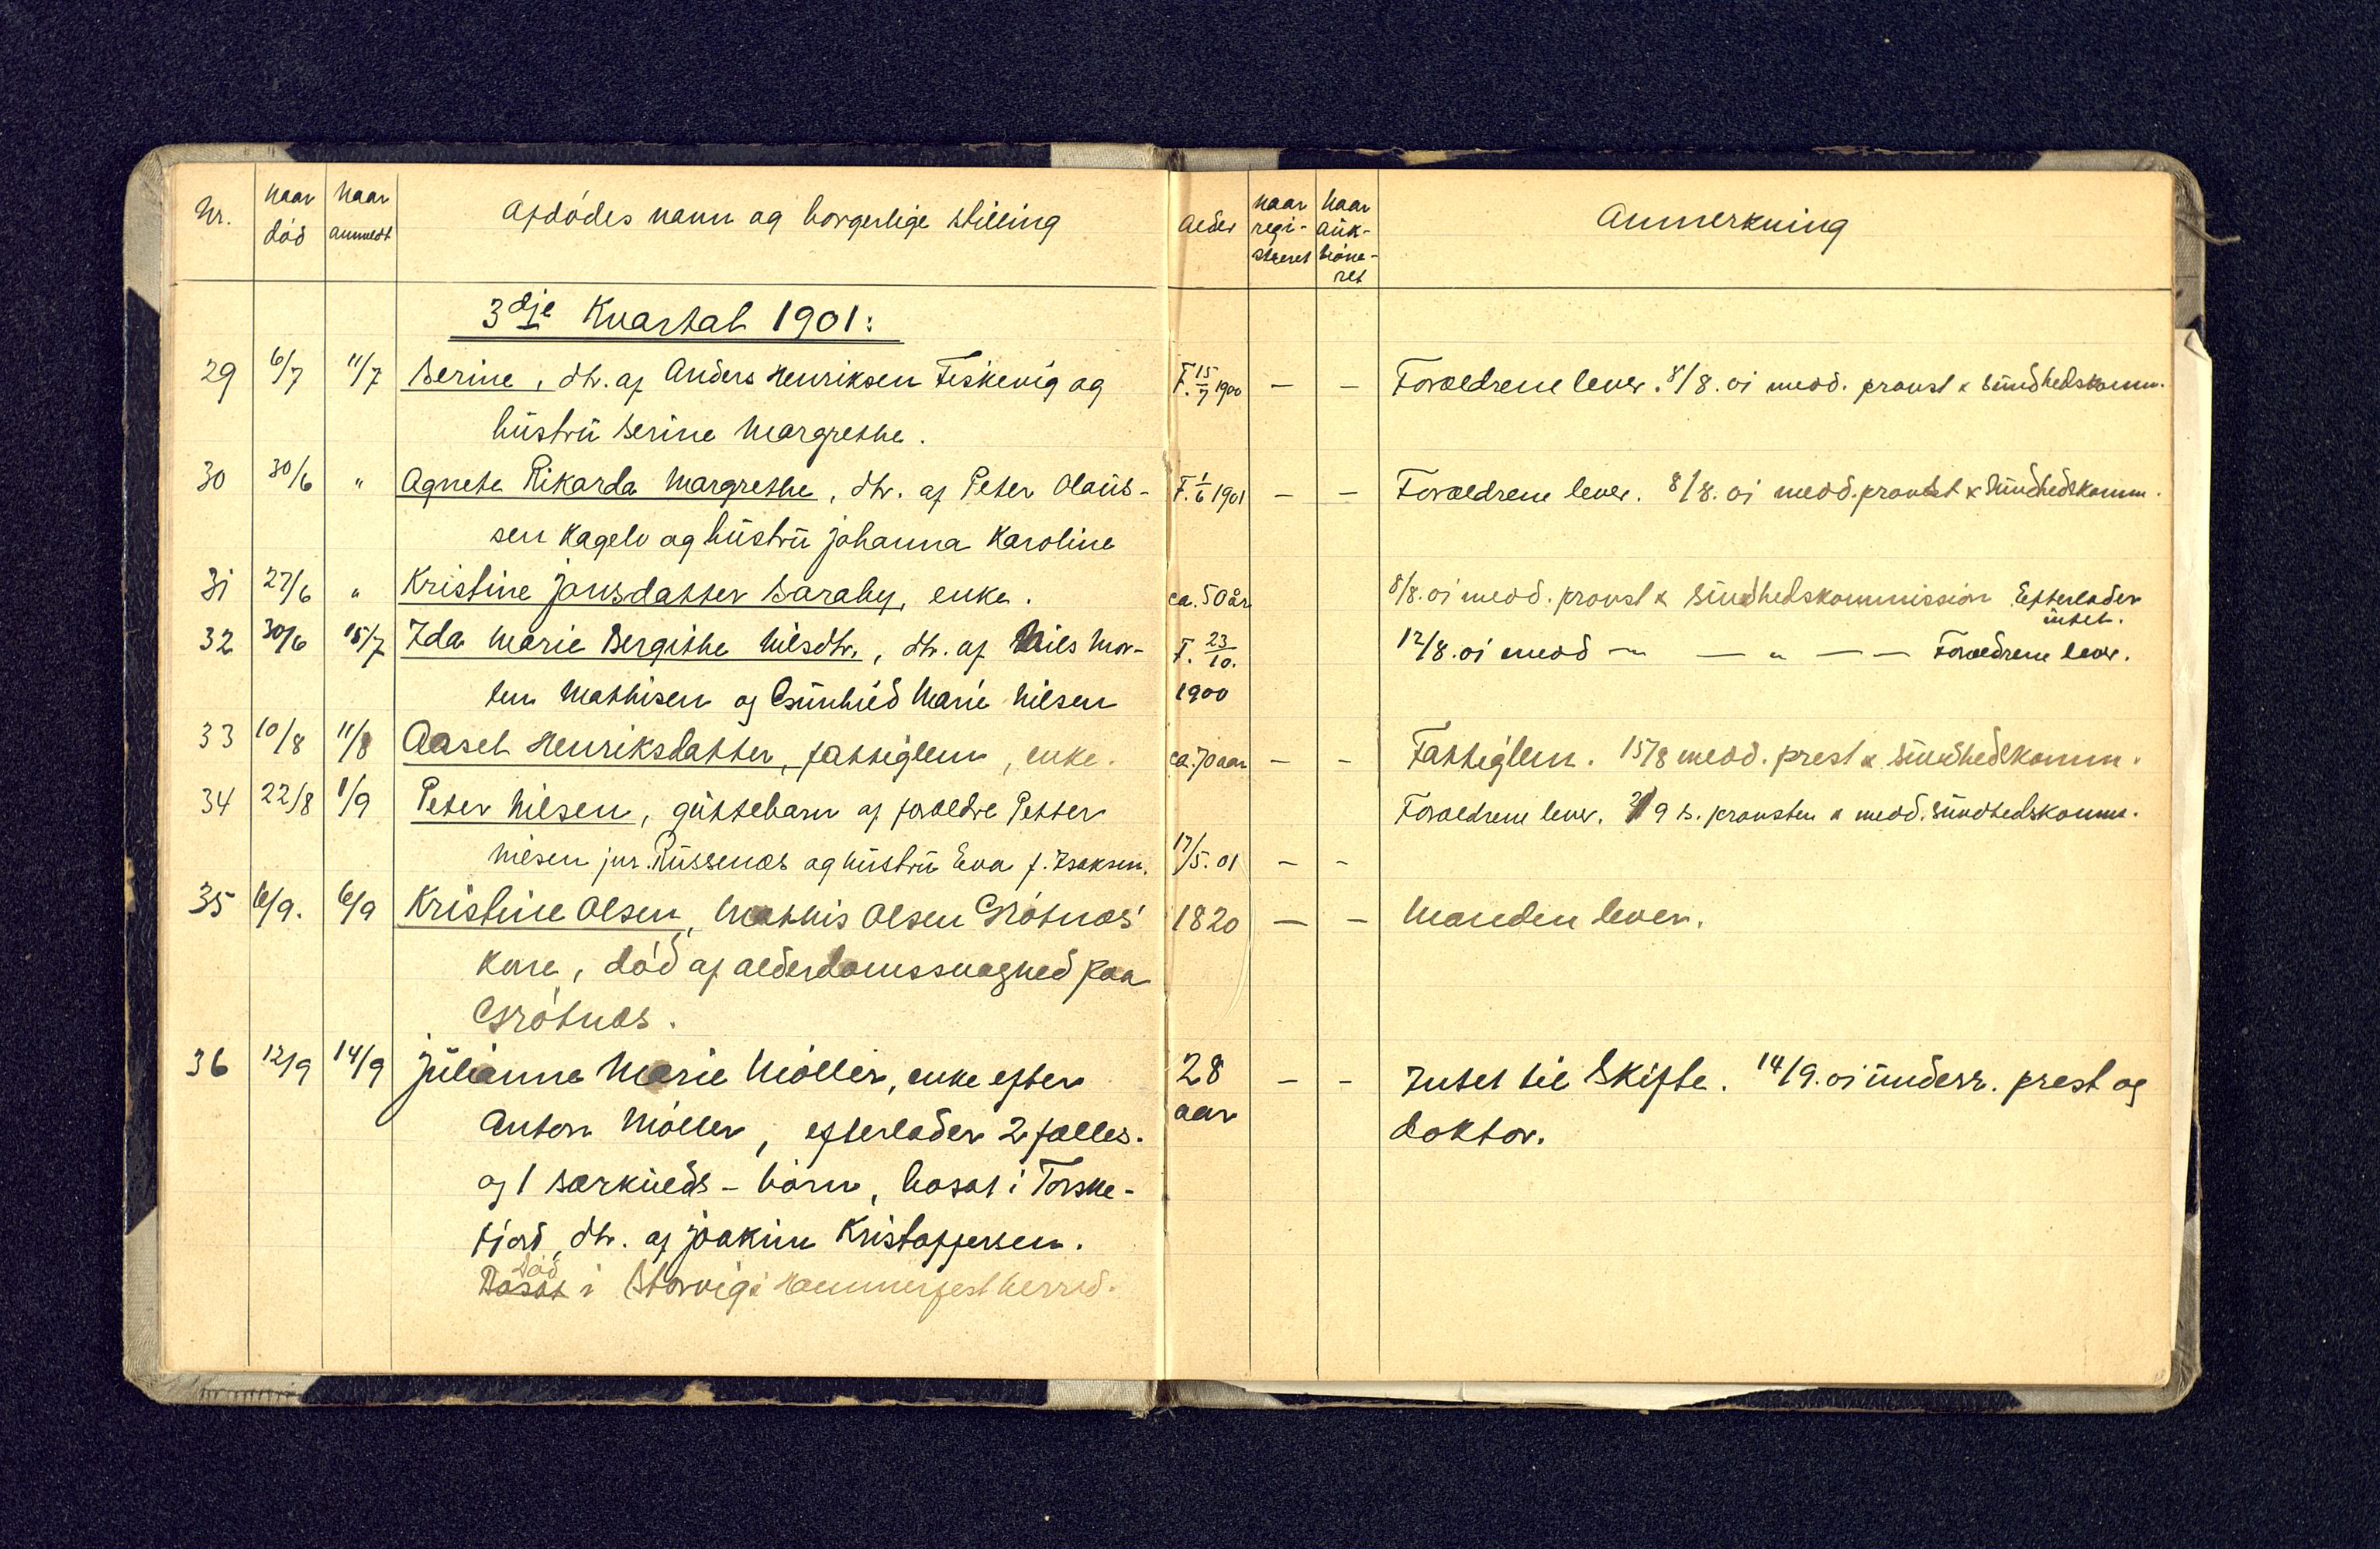 Nr.
Naar død
Naar anmeldt
Afdødes navn og borgerlige stilling
Alder
Naar regi-
streret
Naar auk-
sione-
ret
Anmerkning
3dje Kvartal 1901:
29 6/7 11/7 Berine, dtr. af Anders Henriksen Fiskevig og F. 15/7 1900 — — Forældrene lever. 8/8. oi medd. provst & sundhedskomm.
hustru Berine Margrethe.
30 30/6 " Agnete Rikarda Margrethe, dtr. af Peter Olaus- F. 1/6 1901 — — Forældrene lever. 8/8. oi medd. provst & sundhedskomm.
sen Kagelv og hustru Johanna Karoline
31 27/6 " Kristine Jonsdatter Saraby, enke. ca. 50 år 8/8. oi medd. provst & sundhedskommission Efterlader
intet.
32 30/6 15/7 Ida Marie Bergithe Nilsdtr., dtr. af Nils Mor- F. 23/10. 12/8. oi medd — — " — — Forældrene lever.
ten Mathisen og Gunhild Marie Nilsen 1900
33 10/8 11/8 Aaset Henriksdatter, fattiglem, enke. ca. 70 aar — — Fattiglem. 15/8 medd. prest & sundhedskomm.
34 22/8 1/9 Peter Nilsen, guttebarn af forældre Petter Forældrene lever. 2/9 s. provsten & medd. sundhedskomm.
Nilsen jnr. Russenæs og hustru Eva f. Isaksen. 17/5. 01 — —
35 6/9. 6/9 Kristine Olsen, Mathis Olsen Grøtnæs' 1820 — — Manden lever.
kone, død af alderdomssvaghed paa
Grøtnæs.
36 12/9 14/9 Julianne Marie Møller, enke efter 28 — — Intet til Skifte. 14/9. oi underr. prest og
Anton Møller, efterlader 2 fælles- aar doktor.
og 1 særkulds-børn, bosat i Torske-
fjord, dtr. af Joakim Kristoffersen.
Død
Bosat i Storvig i Hammerfest herred.